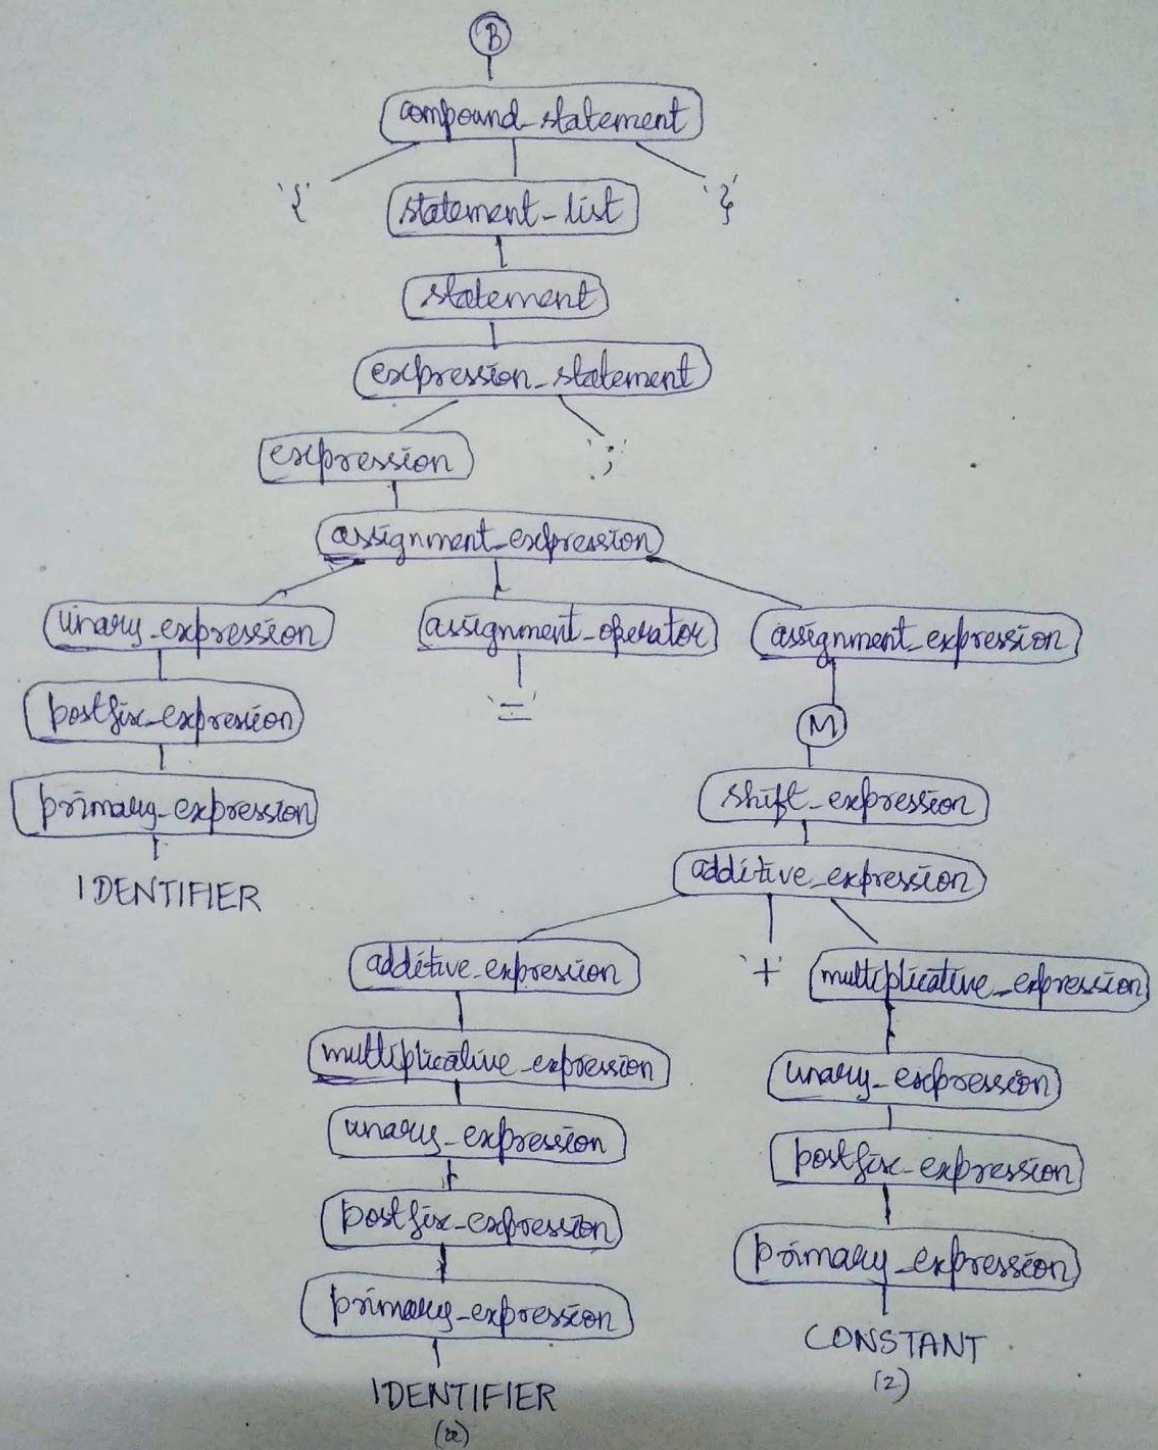 B
compound_statement
'{'
statement_list
'}'
statement
expression_statement
expression
';'
assignment_expression
unary_expression
assignment_operator
assignment_expression
'='
postfix_expression
M
primary_expression
shift_expression
IDENTIFIER
additive_expression
additive_expression
'+'
multiplicative_expression
multiplicative_expression
unary_expression
unary_expression
postfix_expression
postfix_expression
primary_expression
primary_expression
CONSTANT
(2)
IDENTIFIER